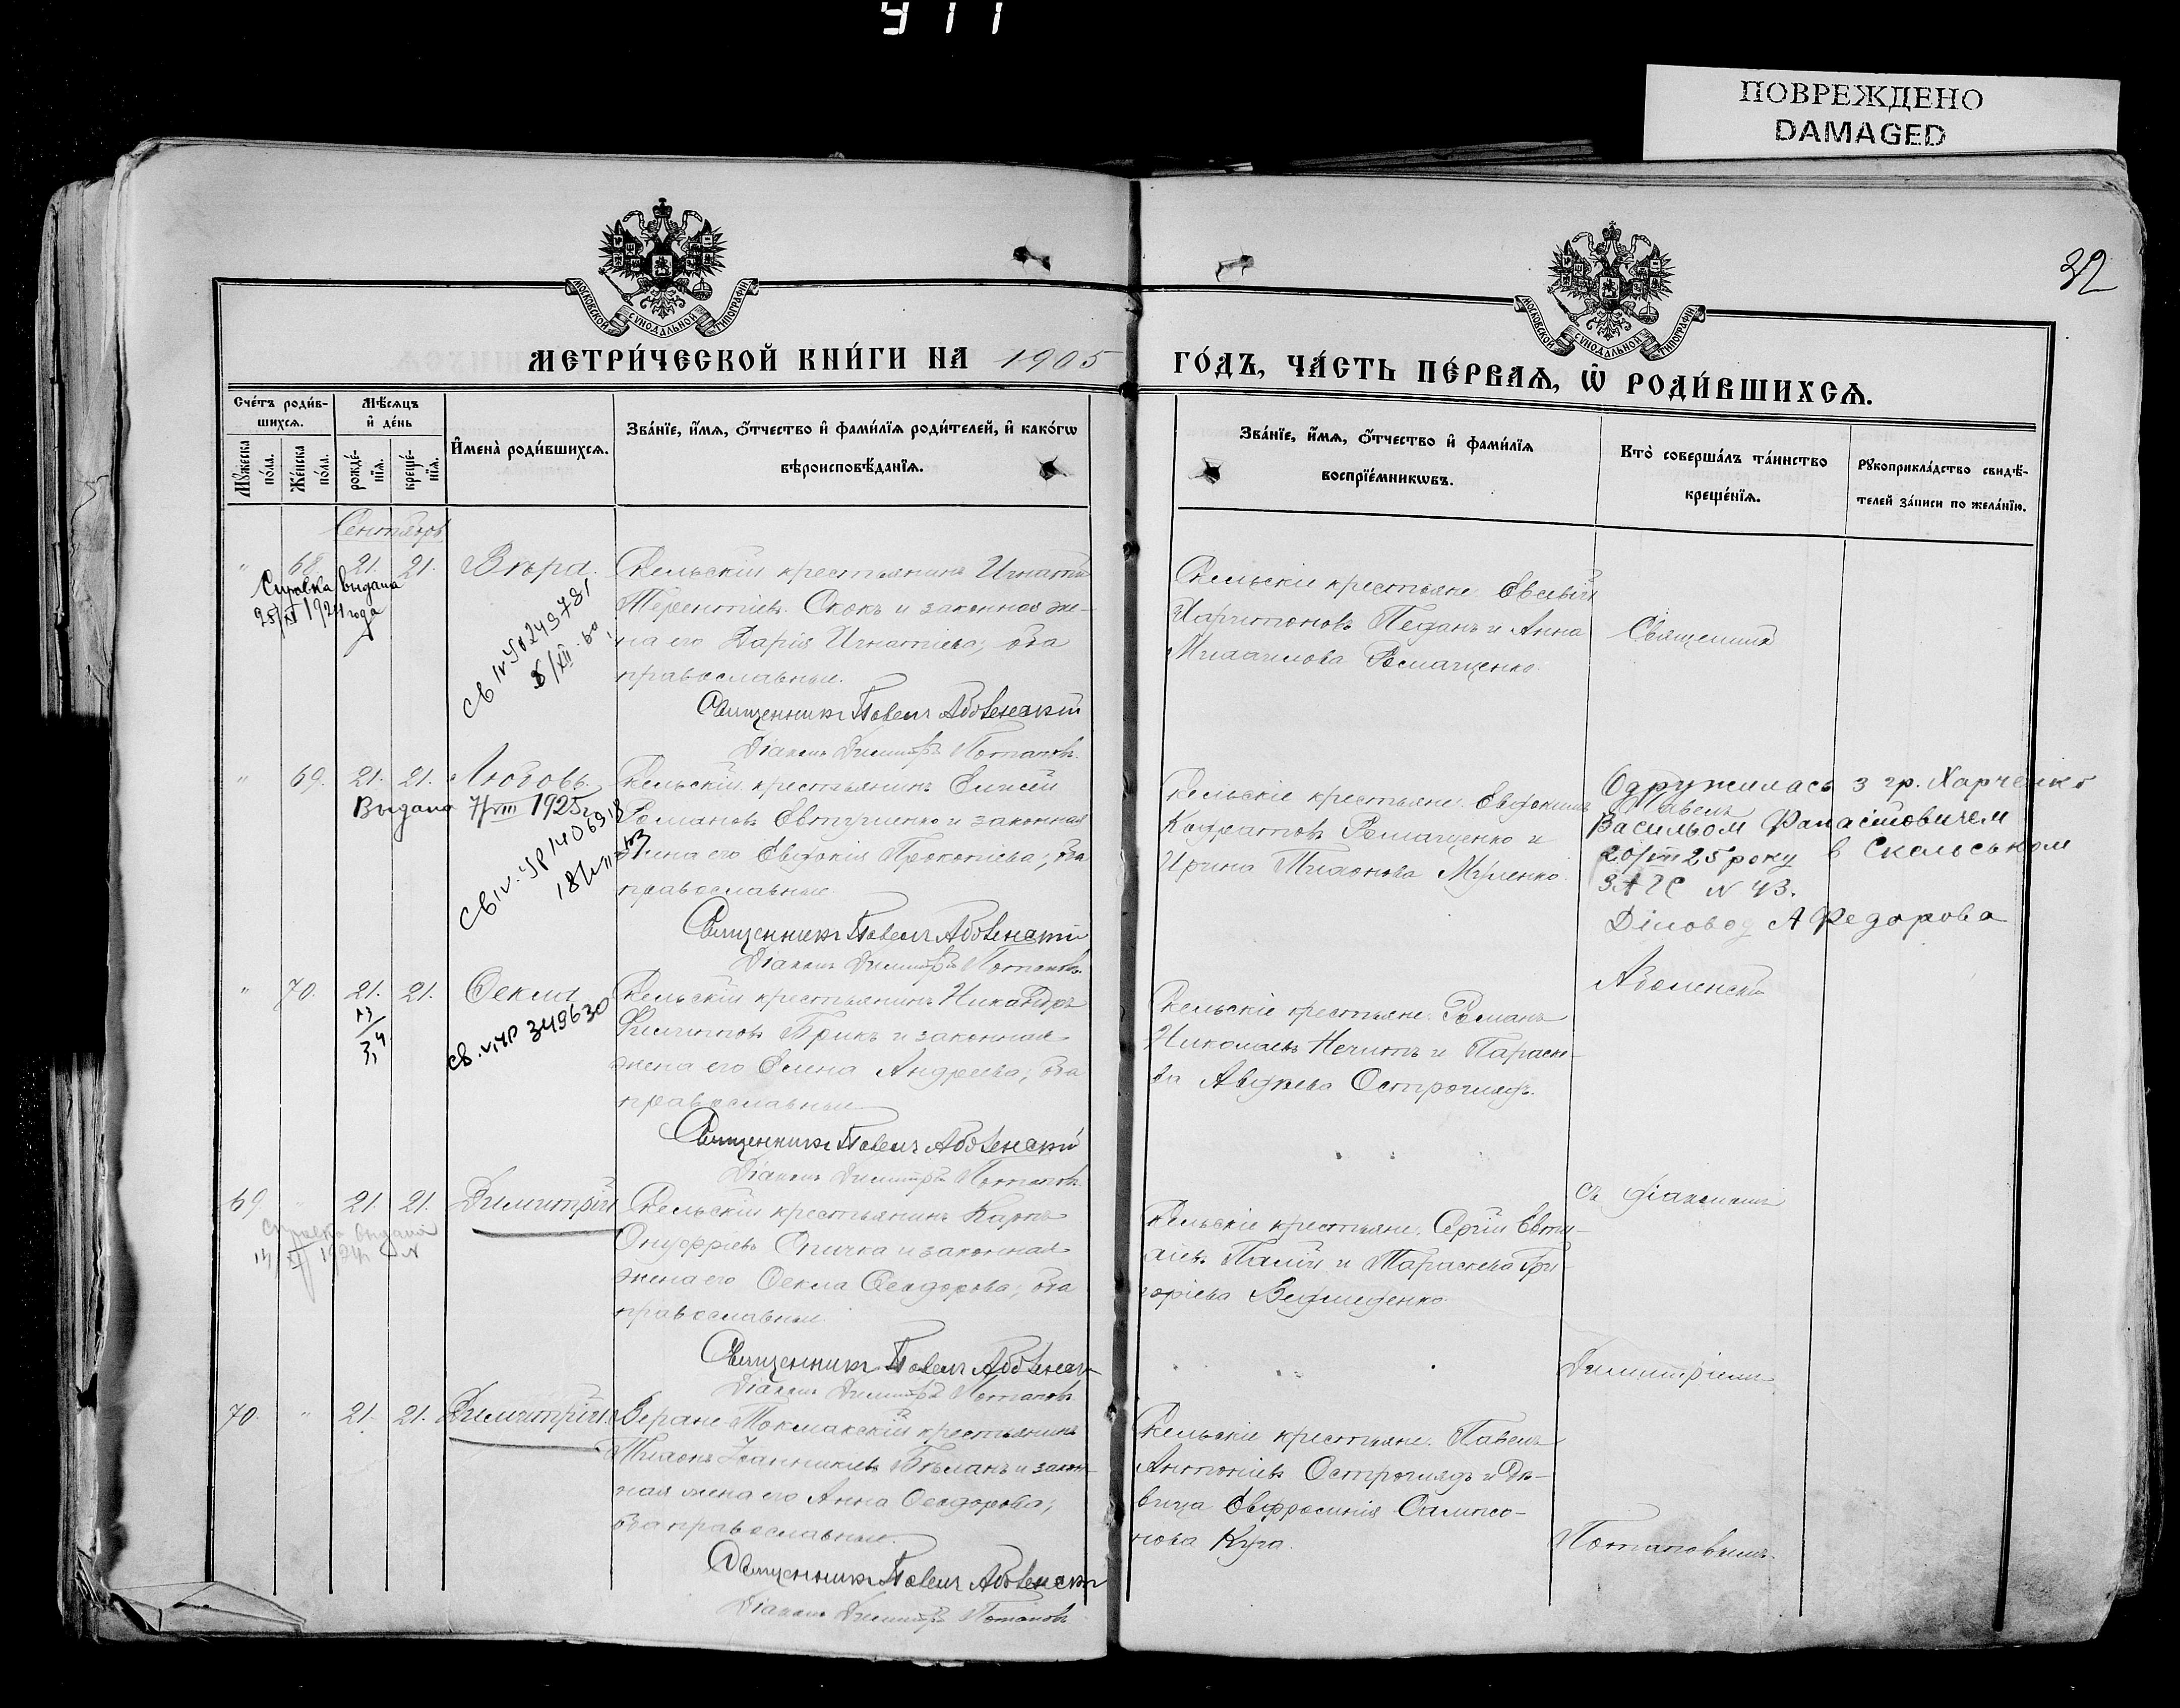 911
ПОВРЕЖДЕНО
DAMAGED
32
МОСКОВСКОЙ СѴНОДАЛЬНОЙ ТИПОГРАФІИ
МОСКОВСКОЙ СѴНОДАЛЬНОЙ ТИПОГРАФІИ
МЕТРИ́ЧЕСКОЙ КНИ́ГИ НА 1905
ГО́ДЪ, ЧА́СТЬ ПЕ́РВАѦ, Ѡ҆ РОДИ́ВШИХСѦ.
Сче́тъ роди́в-
шихсѧ.
Мꙋ́жеска по́ла.
Же́нска по́ла.
Мѣ́сѧцъ
и҆ де́нь
рожде́-
нїѧ.
креще́-
нїѧ.
И҆мена̀ роди́вшихсѧ.
Зва́нїе, и҆́мѧ, ѻ҆́тчество и҆ фами́лїѧ роди́телей, и҆ како́гѡ
вѣроисповѣ́данїѧ.
Зва́нїе, и҆́мѧ, ѻ҆́тчество и҆ фами́лїѧ
воспрїе́мникѡвъ.
Кто̀ соверша́лъ та́инство
креще́нїѧ.
Рꙋкоприкла́дство свидѣ́-
телей за́писи по жела́нїю.
Сентябрь
" 68. 21. 21. Вѣра.
Справка выдана
25/XI 1924 года
св IV ЯР 249781
8/XII-60
Скельскій крестьянинъ Игнатій
Терентіевъ Скокъ и законная же-
на его Дарія Игнатіева; оба
православные.
Священникъ Павелъ Аболенскій
Діаконъ Димитрій Потаповъ.
Скельскіе крестьяне: Евсевій
Харитоновъ Педанъ и Анна
Михайлова Ромащенко.
Священникъ
" 69. 21. 21. Любовь.
Выдана 7/VIII 1925 г
Скельскій крестьянинъ Елисей
Романовъ Евтушенко и законная
жена его Евдокія Прокопіева; оба
православные.
Священникъ Павелъ Аболенскій
Діаконъ Димитрій Потаповъ.
Скельскіе крестьяне: Евфимій
Кодратовъ Ромащенко и
Ирина Тихонова Муленко.
Одружилась з гр. Харченко
Павель
Васильом Фанасійовичем
20/VIII 25 року в Скельськом
ЗАГС N 43.
Діловод А Федорова
Аболенскій
" 70. 21. 21. Ѳекла
св. V ЯР 349630
Скельскій крестьянинъ Никандръ
Филиповъ Прикъ и законная
жена его Елена Андреева; оба
православные.
Священникъ Павелъ Аболенскій
Діаконъ Димитрій Потаповъ.
Скельскіе крестьяне: Романъ
Николаевъ Нечитъ и Параске-
ва Авдѣева Остроглядъ.
съ діакономъ
69. " 21. 21. Димитрій
Справка выдана
14/XI 1924 г N
Скельскій крестьянинъ Карпъ
Онуфріевъ Спичка и законная
жена его Ѳекла Ѳеодорова; оба
православные.
Священникъ Павелъ Аболенскій
Діаконъ Димитрій Потаповъ.
Скельскіе крестьяне: Сергій Евти-
хіевъ Палій и Параскева Гри-
горіева Ведмеденко.
Димитріемъ
70. " 21. 21. Димитрій.
Верхне-Токмакскій крестьянинъ
Тихонъ Іоанникіевъ Бѣланъ и закон-
ная жена его Анна Ѳеодорова;
оба православные.
Священникъ Павелъ Аболенскій
Діаконъ Димитрій Потаповъ
Скельскіе крестьяне: Павелъ
Антоніевъ Остроглядъ и дѣ-
вица Евфросинія Сампсо-
нова Куга.
Потаповымъ.